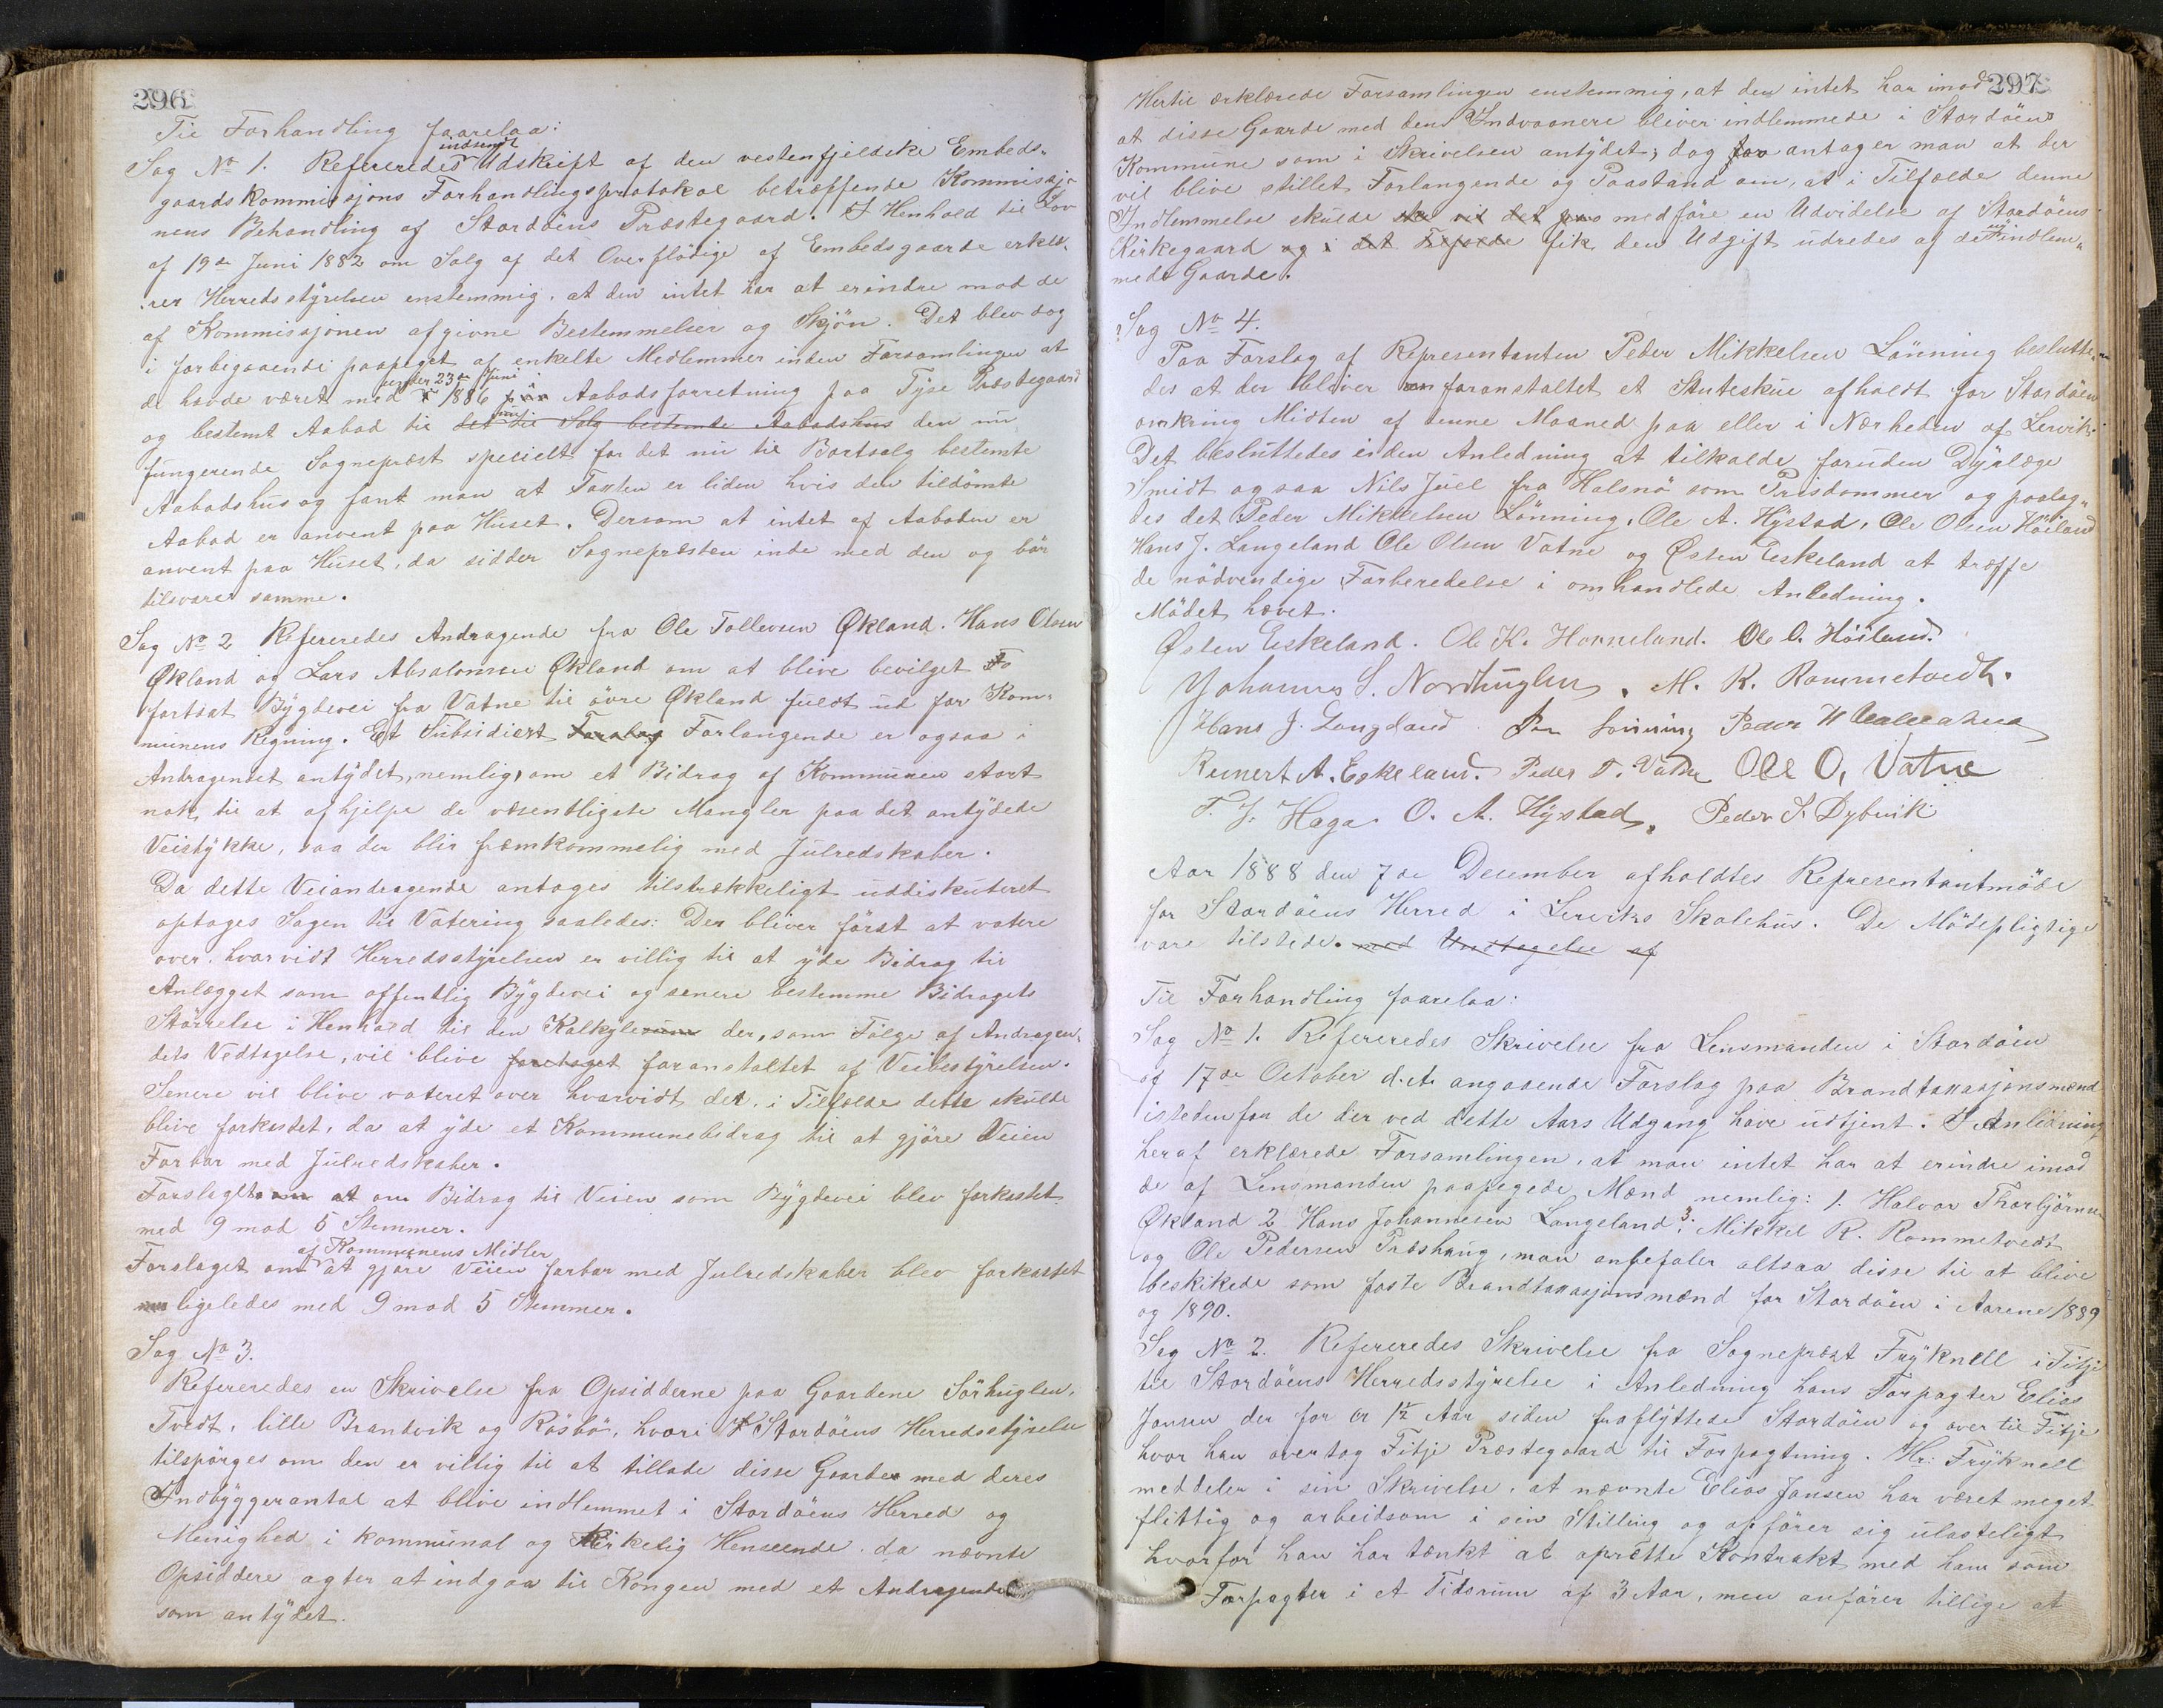 296
Til Forhandling foorelaa:
Sag No 1. Refereredes indsendt Udskrift af den vestenfjeldske Embeds-
gaardskommissjons Forhandlingsprotokol betræffende Kommissjo-
nens Behandling af Stordöens Præstegaard. I Henhold til Lov
af 19de Juni 1882 om Salg af det Overflödige af Embedsgaarde erklæ-
rer Herredsstÿrelsen enstemmig, at den intet har at erindre mod de
af Kommissjonen afgivne Bestemmelser og Skjön. Det blev dog
i forbigaaende paapeget af enkelte Medlemmer inden Forsamlingen at
de havde været med under 23de Juni 1886 i Aabodsforretning paa Tÿse Præstegaard
og bestemt Aabod til det til Salg bestemte Aabodshus den nu
fungerende Sognepræst specielt for det nu til Bortsalg bestemte
Aabodshus og fant man at Taxten er liden hvis den tildömte
Aabod er anvent paa Huset. Dersom at intet af Aaboden er
anvent paa Huset, da sidder Sognepræsten inde med den og bör
tilsvare samme.
Sag No 2 Refereredes Andragende fra Ole Tollevsen Økland. Hans Olsen
Økland og Lars Absalomsen Økland om at blive bevilget
fortsat Bÿgdevei fra Vatne til övre Økland fuldt ud for Kom-
munens Regning. Et Subsidiært Forslag Forlangende er ogsaa i
Andragendet antÿdet, nemlig, om et Bidrag af Kommunen stort
nok til at afhjelpe de væsentligste Mangler paa det antÿdede
Veistÿkke, saa der blir fremkommelig med Julredskaber.
Da dette Veiandragende antages tilstrækkeligt uddiskuteret
optages Sagen til Votering saaledes: Der bliver först at votere
over, hvorvidt Herredsstÿrelsen er villig til at ÿde Bidrag til
Anlægget som offentlig Bÿgdevei og senere bestemme Bidragets
Störrelse i Henhold til den Kalkÿle der, som Fölge af Andragen-
dets Vedtagelse, vil blive foretaget foranstaltet af Veibestÿrelsen.
Senere vil blive voteret over hvorvidt det, i Tilfælde dette skulde
blive forkastet, da at ÿde et Kommunebidrag til at gjöre Veien
Farbar med Julredskaber.
Forslaget om at om Bidrag til Veien som Bÿgdevei blev forkastet
med 9 mod 5 Stemmer.
Forslaget om af Kommunens Midler at gjöre Veien farbar med Julredskaber blev forkastet
ligeledes med 9 mod 5 Stemmer.
Sag No 3.
Refereredes en Skrivelse fra Opsidderne paa Gaardene Sörhuglen,
Tvedt, lille Brandvik og Rösbö, hvori Stordöens Herredsstÿrelse
tilspörges om den er villig til at tillade disse Gaarde med deres
Indbÿggerantal at blive indlemmet i Stordöens Herred og
Menighed i kommunal og Kirkelig Henseende da nævnte
Opsiddere agter at indgaa til Kongen med et Andragende
som antÿdet.
297
Hertil erklærede Forsamlingen enstemmig, at den intet har imod
at disse Gaarde med dens Indvaanere bliver indlemmede i Stordöens
Kommune som i Skrivelsen antÿdet; dog for antager man at der
vil blive stillet Forlangende og Paastand om, at i Tilfælde denne
Indlemmelse skulde medföre en Udvidelse af Stordöens
Kirkegaard og i det Tilfælde fik den Udgift udredes af de nÿ indlem-
mede Gaarde.
Sag No 4.
Paa Forslag af Representanten Peder Mikkelsen Lönning beslutte-
des at der bliver foranstaltet et Stuteskue afholdt for Stordöen
omkring Midten af denne Maaned paa eller i Nærheden af Lervik.
Det besluttedes i den Anledning at tilkalde foruden Dÿrlæge
Smidt ogsaa Nils Juel fra Halsnö som Prisdommer og paalag-
des det Peder Mikkelsen Lönning, Ole A. Hÿstad, Ole Olsen Höiland
Hans J. Langeland Ole Olsen Vatne og Østen Eskeland at træffe
de nödvendige Forberedelse i omhandlede Anledning.
Mödet hævet.
Østen Eskeland. Ole K. Horneland. Ole O. Höiland.
Johannes S. Nordhuglen. M. R. Rommetvedt.
Hans J. Langeland Peder
Reinert A. Eskeland. Peder T. Vatne Ole O, Vatne
T. J. Haga. O. A. Hÿstad, Peder S. Dybvik
Aar 1888 den 7de December afholdtes Representantmöde
for Stordöens Herred i Lerviks Skolehus. De Mödepligtige
vare tilstede. med Undtagelse af
Til Forhandling foorelaa:
Sag No 1. Refereredes Skrivelse fra Lensmanden i Stordöen
af 17de October d. A. angaaende Forslag paa Brandtaxasjonsmænd
istedenfor de der ved dette Aars Udgang have udtjent. I Anledning
heraf erklærede Forsamlingen, at man intet har at erindre imod
de af Lensmanden paapegede Mænd nemlig: 1. Halvor Thorbjörnsen
Økland 2 Hans Johannesen Langeland 3. Mikkel R. Rommetvedt
og Ole Pedersen Præshaug, man anbefaler altsaa disse til at blive
beskikede som faste Brandtaxasjonsmænd for Stordöen i Aarene 1889
og 1890.
Sag No 2. Refereredes Skrivelse fra Sognepræst Frÿknell i Fitje
til Stordöens Herredsstÿrelse i Anledning hans Forpagter Elias
Jansen der for cr 1½ Aar siden fraflÿttede Stordöen og over til Fitje
hvor han overtog Fitje Præstegaard til Forpagtning. Hr: Frÿknell
meddeler i sin Skrivelse, at nævnte Elias Jansen har været meget
flittig og arbeidsom i sin Stilling og opförer sig ulasteligt
hvorfor han har tænkt at oprette Kontrakt med ham som
Forpagter i et Tidsrum af 3 Aar, men anförer tillige at